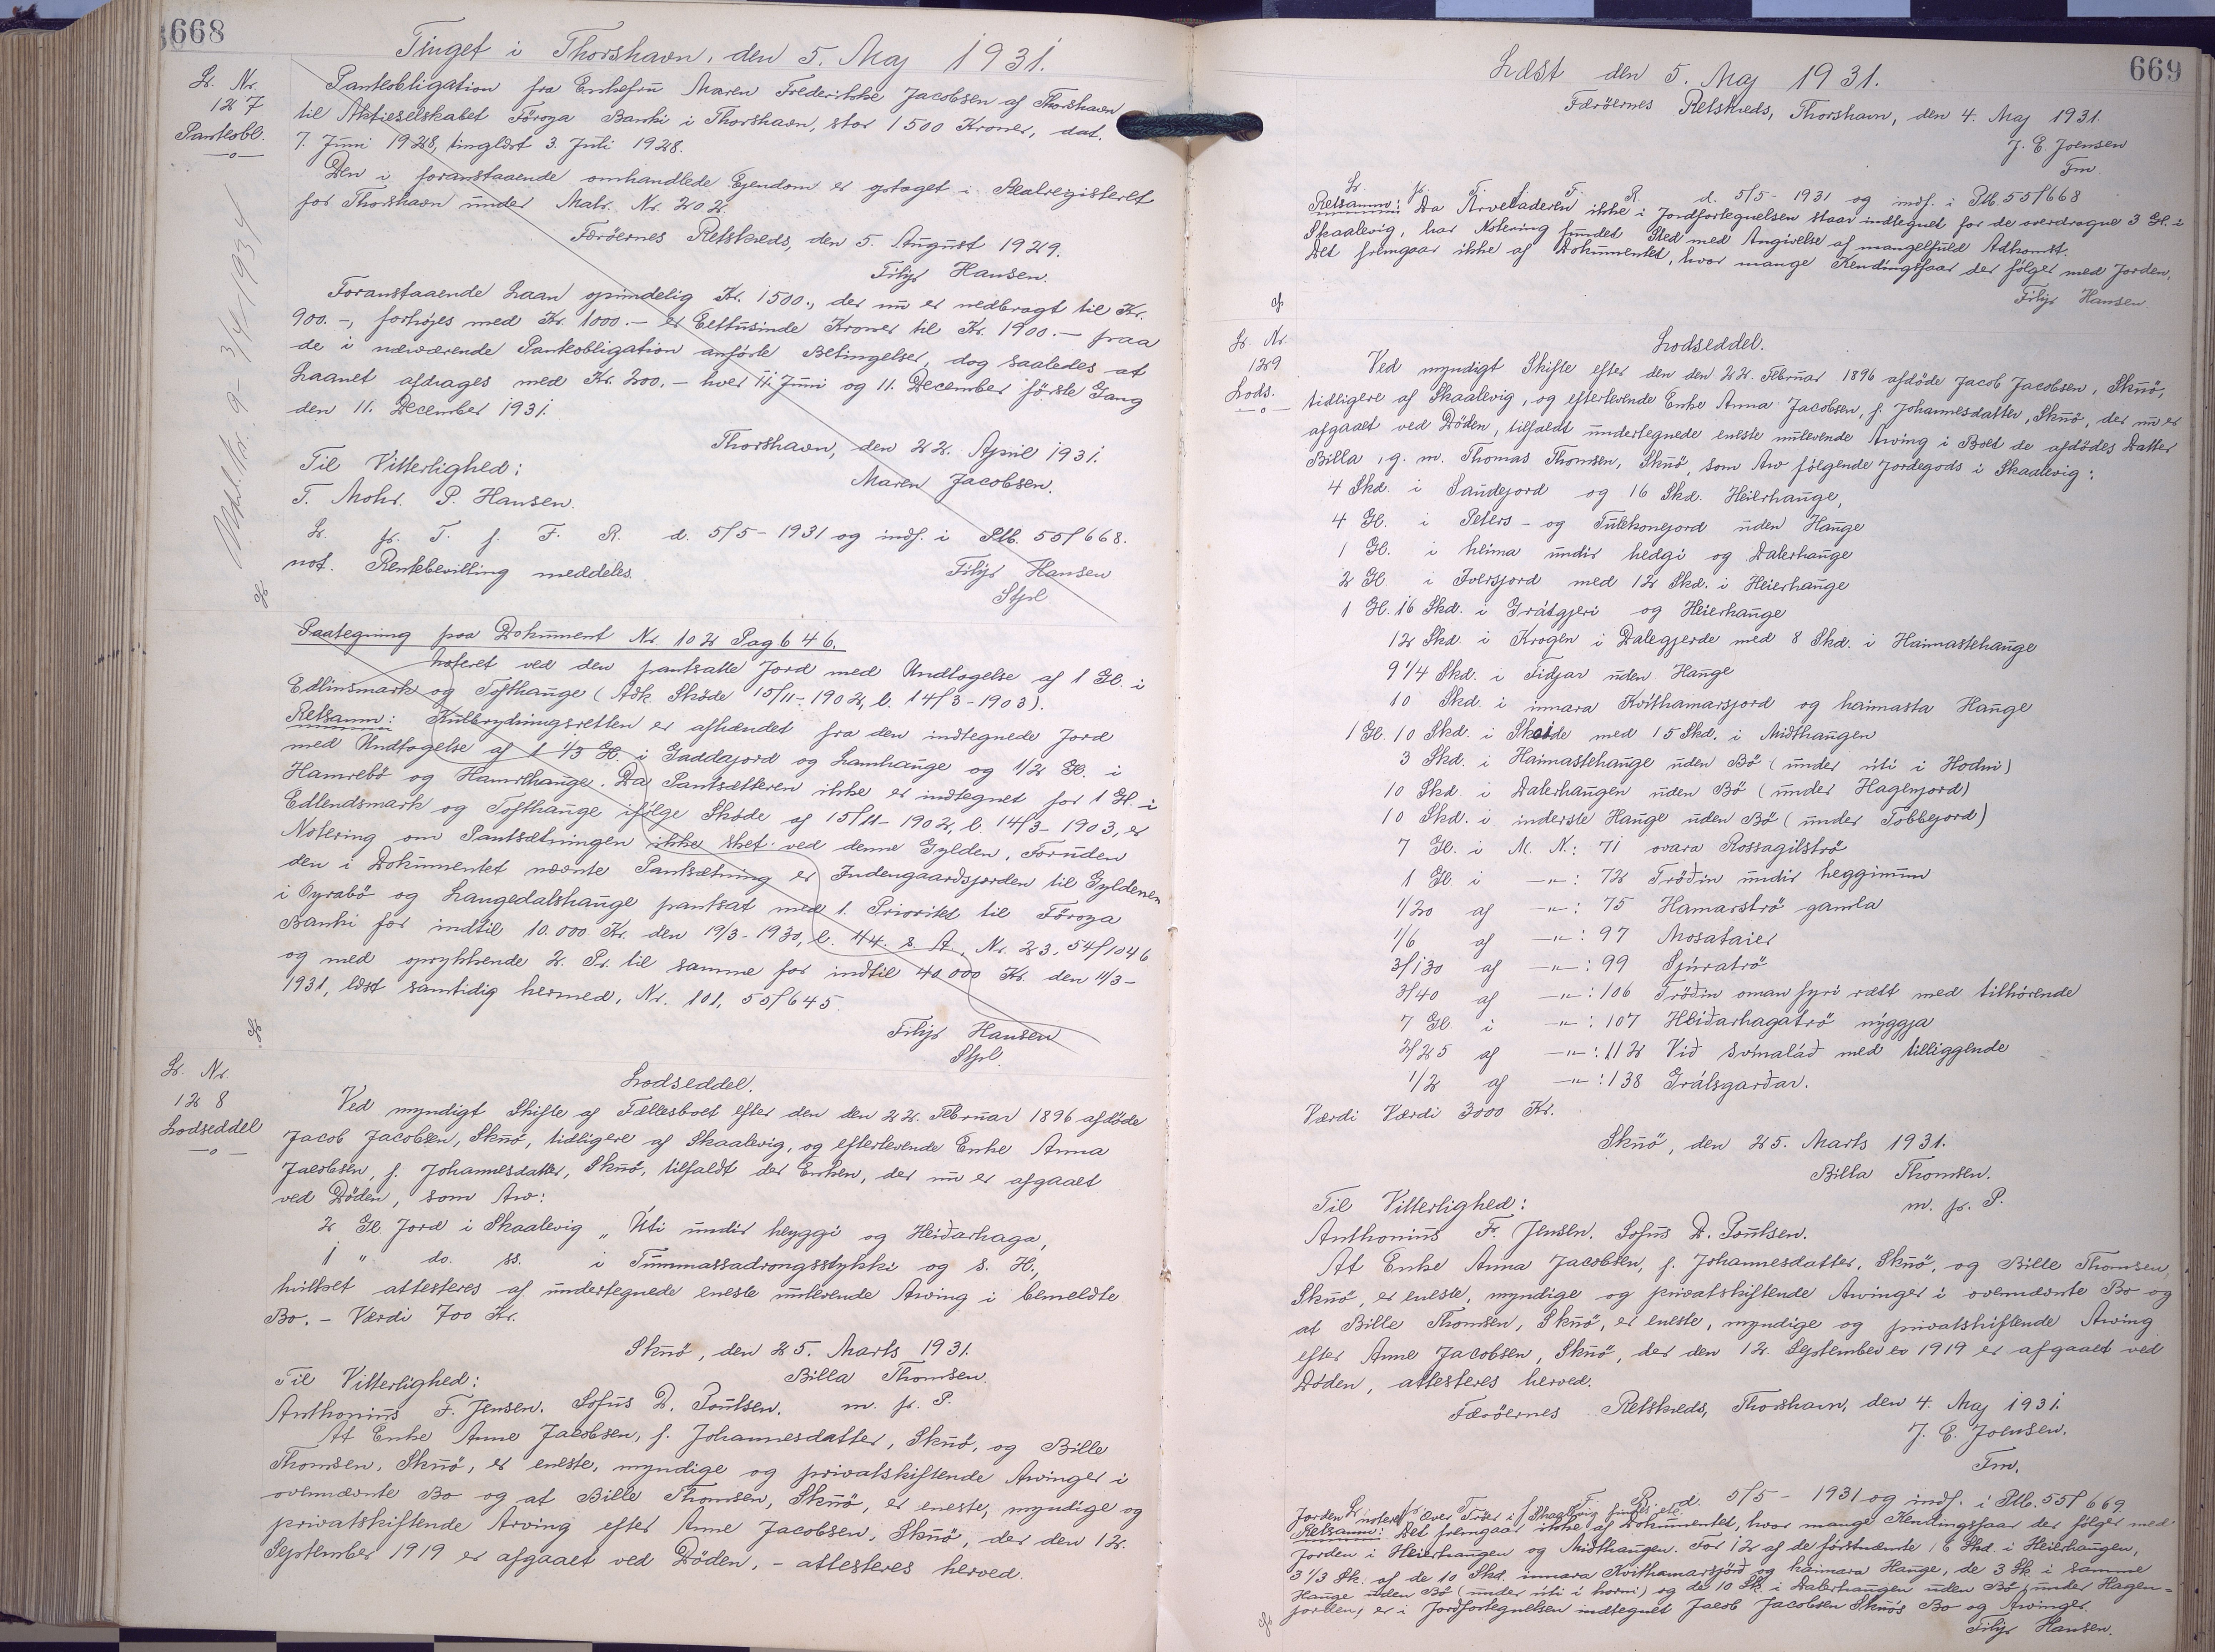 668
Tinget i Thorshavn, den 5. Maj 1931.
Lb. Nr.
127
Panteobl.
Panteobligation fra Enkefru Maren Frederikke Jacobsen af Thorshavn
til Aktieselskabet Föroya Banki i Thorshavn, stor 1500 Kroner, dat.
7. Juni 1928, tinglæst 3. Juli 1928.
Den i foranstaaende omhandlede Ejendom er optaget i Realregisteret
for Thorshavn under Matr. Nr. 202.
Færöernes Retskreds, den 5. August 1929.
Filip Hansen.
Foranstaaende Laan oprindelig Kr. 1500., der nu er nedbragt til Kr.
900.-, forhøjes med Kr. 1000.- er Eettusinde Kroner til Kr. 1900.- paa
de i nærværende Panteobligation anførte Betingelser, dog saaledes at
Laanet afdrages med Kr. 200.- hver 11. Juni og 11. December første Gang
den 11. December 1931.
Thorshavn, den 22. April 1931.
Til Vitterlighed:
Maren Jacobsen.
T. Mohr. P. Hansen.
Lb. fr. T. f. F. R. d. 5/5-1931 og indf. i Ptb. 55/668.
not. Rentebevilling meddeles.
Filip Hansen
Stpl.
Paategning paa Dokument Nr. 102 Pag 646.
Noteret ved den pantsatte Jord med Undtagelse af 1 Gl. i
Edlinsmark og Tofthauge (Adk. Skøde 15/11-1902, l. 14/3-1903).
Retsanm: Kulbrydningsretten er afhændet fra den indtegnede Jord
med Undtagelse af 1 1/3 Gl. i Gaddajord og Lamhauge og 1/2 Gl. i
Hamrebö og Hamrehauge. Da Pantsætteren ikke er indtegnet for 1 Gl. i
Edlendsmark og Tofthauge ifølge Skøde af 15/11-1902, l. 14/3-1903, er
Notering om Pantsætningen ikke sket ved denne Gylden. Foruden
den i Dokumentet nævnte Pantsætning er Indengaardsjorden til Gyldenen
i Oyrabö og Laugedalshauge pantsat med 1. Prioritet til Föroya
Banki for indtil 10.000 Kr. den 19/3-1930, l. 1/4. s. A., Nr. 23, 54/1046
og med oprykkende 2. Pr. til samme for indtil 40.000 Kr. den 11/3-
1931, læst samtidig hermed, Nr. 101, 55/645.
Filip Hansen
Stpl.
Lb. Nr.
128
Lodseddel
Lodseddel.
Ved myndigt Skifte af Fællesboet efter den den 22. Februar 1896 afdöde
Jacob Jacobsen, Skuö, tidligere af Skaalevig, og efterlevende Enke Anna
Jacobsen, f. Johannesdatter, Skuö, tilfaldt der Enken, der nu er afgaaet
ved Döden, som Arv:
2 Gl. Jord i Skaalevig „ Úti undir heyggi og Heiðarhaga,
1 " do. ss. i Tummassadrongsstykki og s. H.,
hvilket attesteres af undertegnede eneste nulevende Arving i bemeldte
Bo. - Værdi 700 Kr.
Skuö, den 25. Marts 1931.
Til Vitterlighed:
Billa Thomsen.
Anthonius F. Jensen. Sofus D. Poulsen. m. p. P.
At Enke Anne Jacobsen, f. Johannesdatter, Skuö, og Bille
Thomsen, Skuö, er eneste, myndige og privatskiftende Arvinger i
ovennævnte Bo og at Bille Thomsen, Skuö, er eneste, myndige og
privatskiftende Arving efter Anne Jacobsen, Skuö, der den 12.
September 1919 er afgaaet ved Döden, - attesteres herved.
669
Læst den 5. Maj 1931.
Færöernes Retskreds, Thorshavn, den 4. Maj 1931.
J. E. Joensen
Fm.
Lb. fr. T. f. F. R. d. 5/5-1931 og indf. i Ptb. 55/668
Retsanm: Da Arveladeren ikke i Jordfortegnelsen staar indtegnet for de overdragne 3 Gl. i
Skaalevig, har Notering fundet Sted med Angivelse af mangelfuld Adkomst.
Det fremgaar ikke af Dokumentet, hvor mange Kendingsfaar der følger med Jorden.
Filip Hansen
Lb. Nr.
129
Lods.
Lodseddel.
Ved myndigt Skifte efter den den 22. Februar 1896 afdöde Jacob Jacobsen, Skuö,
tidligere af Skaalevig, og efterlevende Enke Anna Jacobsen, f. Johannesdatter, Skuö, der nu er
afgaaet ved Döden, tilfaldt undertegnede eneste nulevende Arving i Boet de afdödes Datter
Billa, g. m. Thomas Thomsen, Skuö, som Arv følgende Jordegods i Skaalevig:
4 Skd. i Sandejord og 16 Skd. Heierhauge,
4 Gl. i Peters- og Tulekonejord uden Hauge
1 Gl. i heima undir hedgi og Dalerhauge
2 Gl. i Iversjord med 12 Skd. i Heierhauge
1 Gl. 16 Skd. i Grátgjeri og Heierhauge
12 Skd. i Krogen i Dalegjerde med 8 Skd. i Haimastehauge
9 1/4 Skd. i Tidjar uden Hauge
10 Skd. i innara Kvithamarsjord og haimasta Hauge
1 Gl. 10 Skd. i Skaide med 15 Skd. i Midthaugen
3 Skd. i Haimastehauge uden Bö (under úti i Hodni)
10 Skd. i Dalerhaugen uden Bö (under Hagenjord)
10 Skd. i inderste Hauge uden Bö (under Tobbejord)
7 Gl. i M. N.: 71 ovara Rossagilströ
1 Gl. i -"-: 72 Tröðin undir hegginum
1/20 af -"-: 75 Hamarströ gamla
1/6 af -"-: 97 Mosataier
3/130 af -"-: 99 Spúratrö
3/40 af -"-: 106 Tröðin oman fyri rætt med tilhörende
7 Gl. i -"-: 107 Heiðarhagatrö nýggja
2/25 af -"-: 112 Við svínaláð med tilliggende
1/2 af -"-: 138 Grálsgarðar.
Værdi Værdi 3000 Kr.
Skuö, den 25. Marts 1931.
Billa Thomsen.
Til Vitterlighed:
m. p. P.
Anthonius Fr. Jensen. Sofus D. Poulsen.
At Enke Anna Jacobsen, f. Johannesdatter, Skuö, og Bille Thomsen,
Skuö, er eneste, myndige og privatskiftende Arvinger i ovennævnte Bo og
at Bille Thomsen, Skuö, er eneste, myndige og privatskiftende Arving
efter Anne Jacobsen, Skuö, der den 12. September 1919 er afgaaet ved
Döden, attesteres herved.
Færöernes Retskreds, Thorshavn, den 4. Maj 1931.
J. E. Joensen.
Fm.
Lb. fr. T. f. F. R. d. 5/5-1931 og indf. i Ptb. 55/669
Jorden noteret
Retsanm: Det fremgaar ikke af Dokumentet, hvor mange Kendingsfaar der følger med
Jorden i Heierhaugen og Midthaugen. For 12 af de förstnævnte 16 Skd. i Heierhaugen,
3 1/3 Sk. af de 10 Skd. innara Kvithamarsjörð og haimara Hauge, de 3 Sk. i samme
Hauge uden Bö (under úti i horni) og de 10 Sk. i Dalerhaugen uden Bö under Hagen-
jorden, er i Jordfortegnelsen indtegnet Jacob Jacobsen Skuö's Bo og Arvinger.
Filip Hansen.